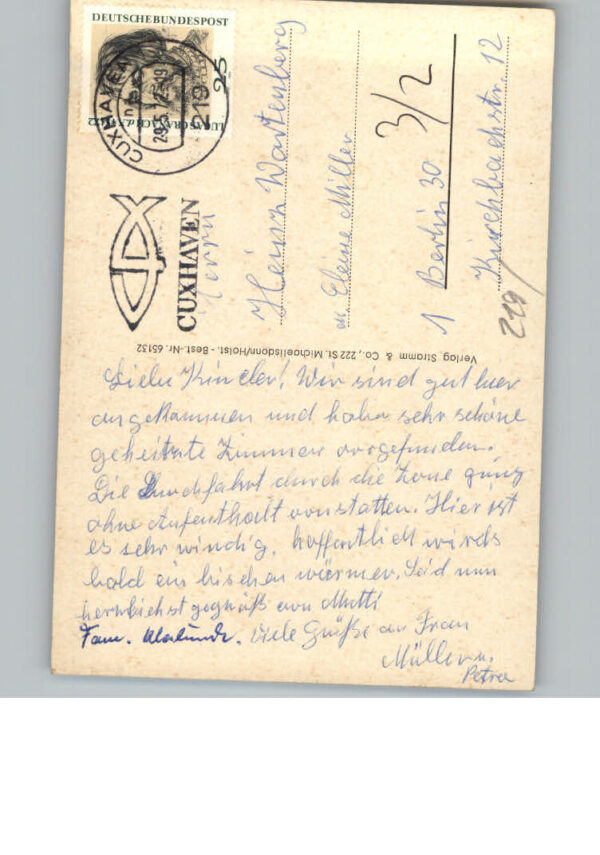 DEUTSCHE BUNDESPOST
25
CUXHAVEN
219
CUXHAVEN
Herrn
Heinz Wartenberg
Miller
3/2
1 Berlin 30
Kirchbachstr. 12
219
Verlag Stramm & Co., 222 St. Michaelisdonn/Holst. - Best.-Nr. 65132
Liebe Kinder! Wir sind gut hier
angekommen und haben sehr schöne
geheitzte Zimmer vorgefunden.
Die Durchfahrt durch die Zone ging
ohne Aufenthalt vonstatten. Hier ist
es sehr windig, hoffentlich wirds
bald ein bischen wärmer. Seid nun
herzlichst gegrüßt von Mutti
Fam. Viele Grüße an Frau
Müller u.
Petra